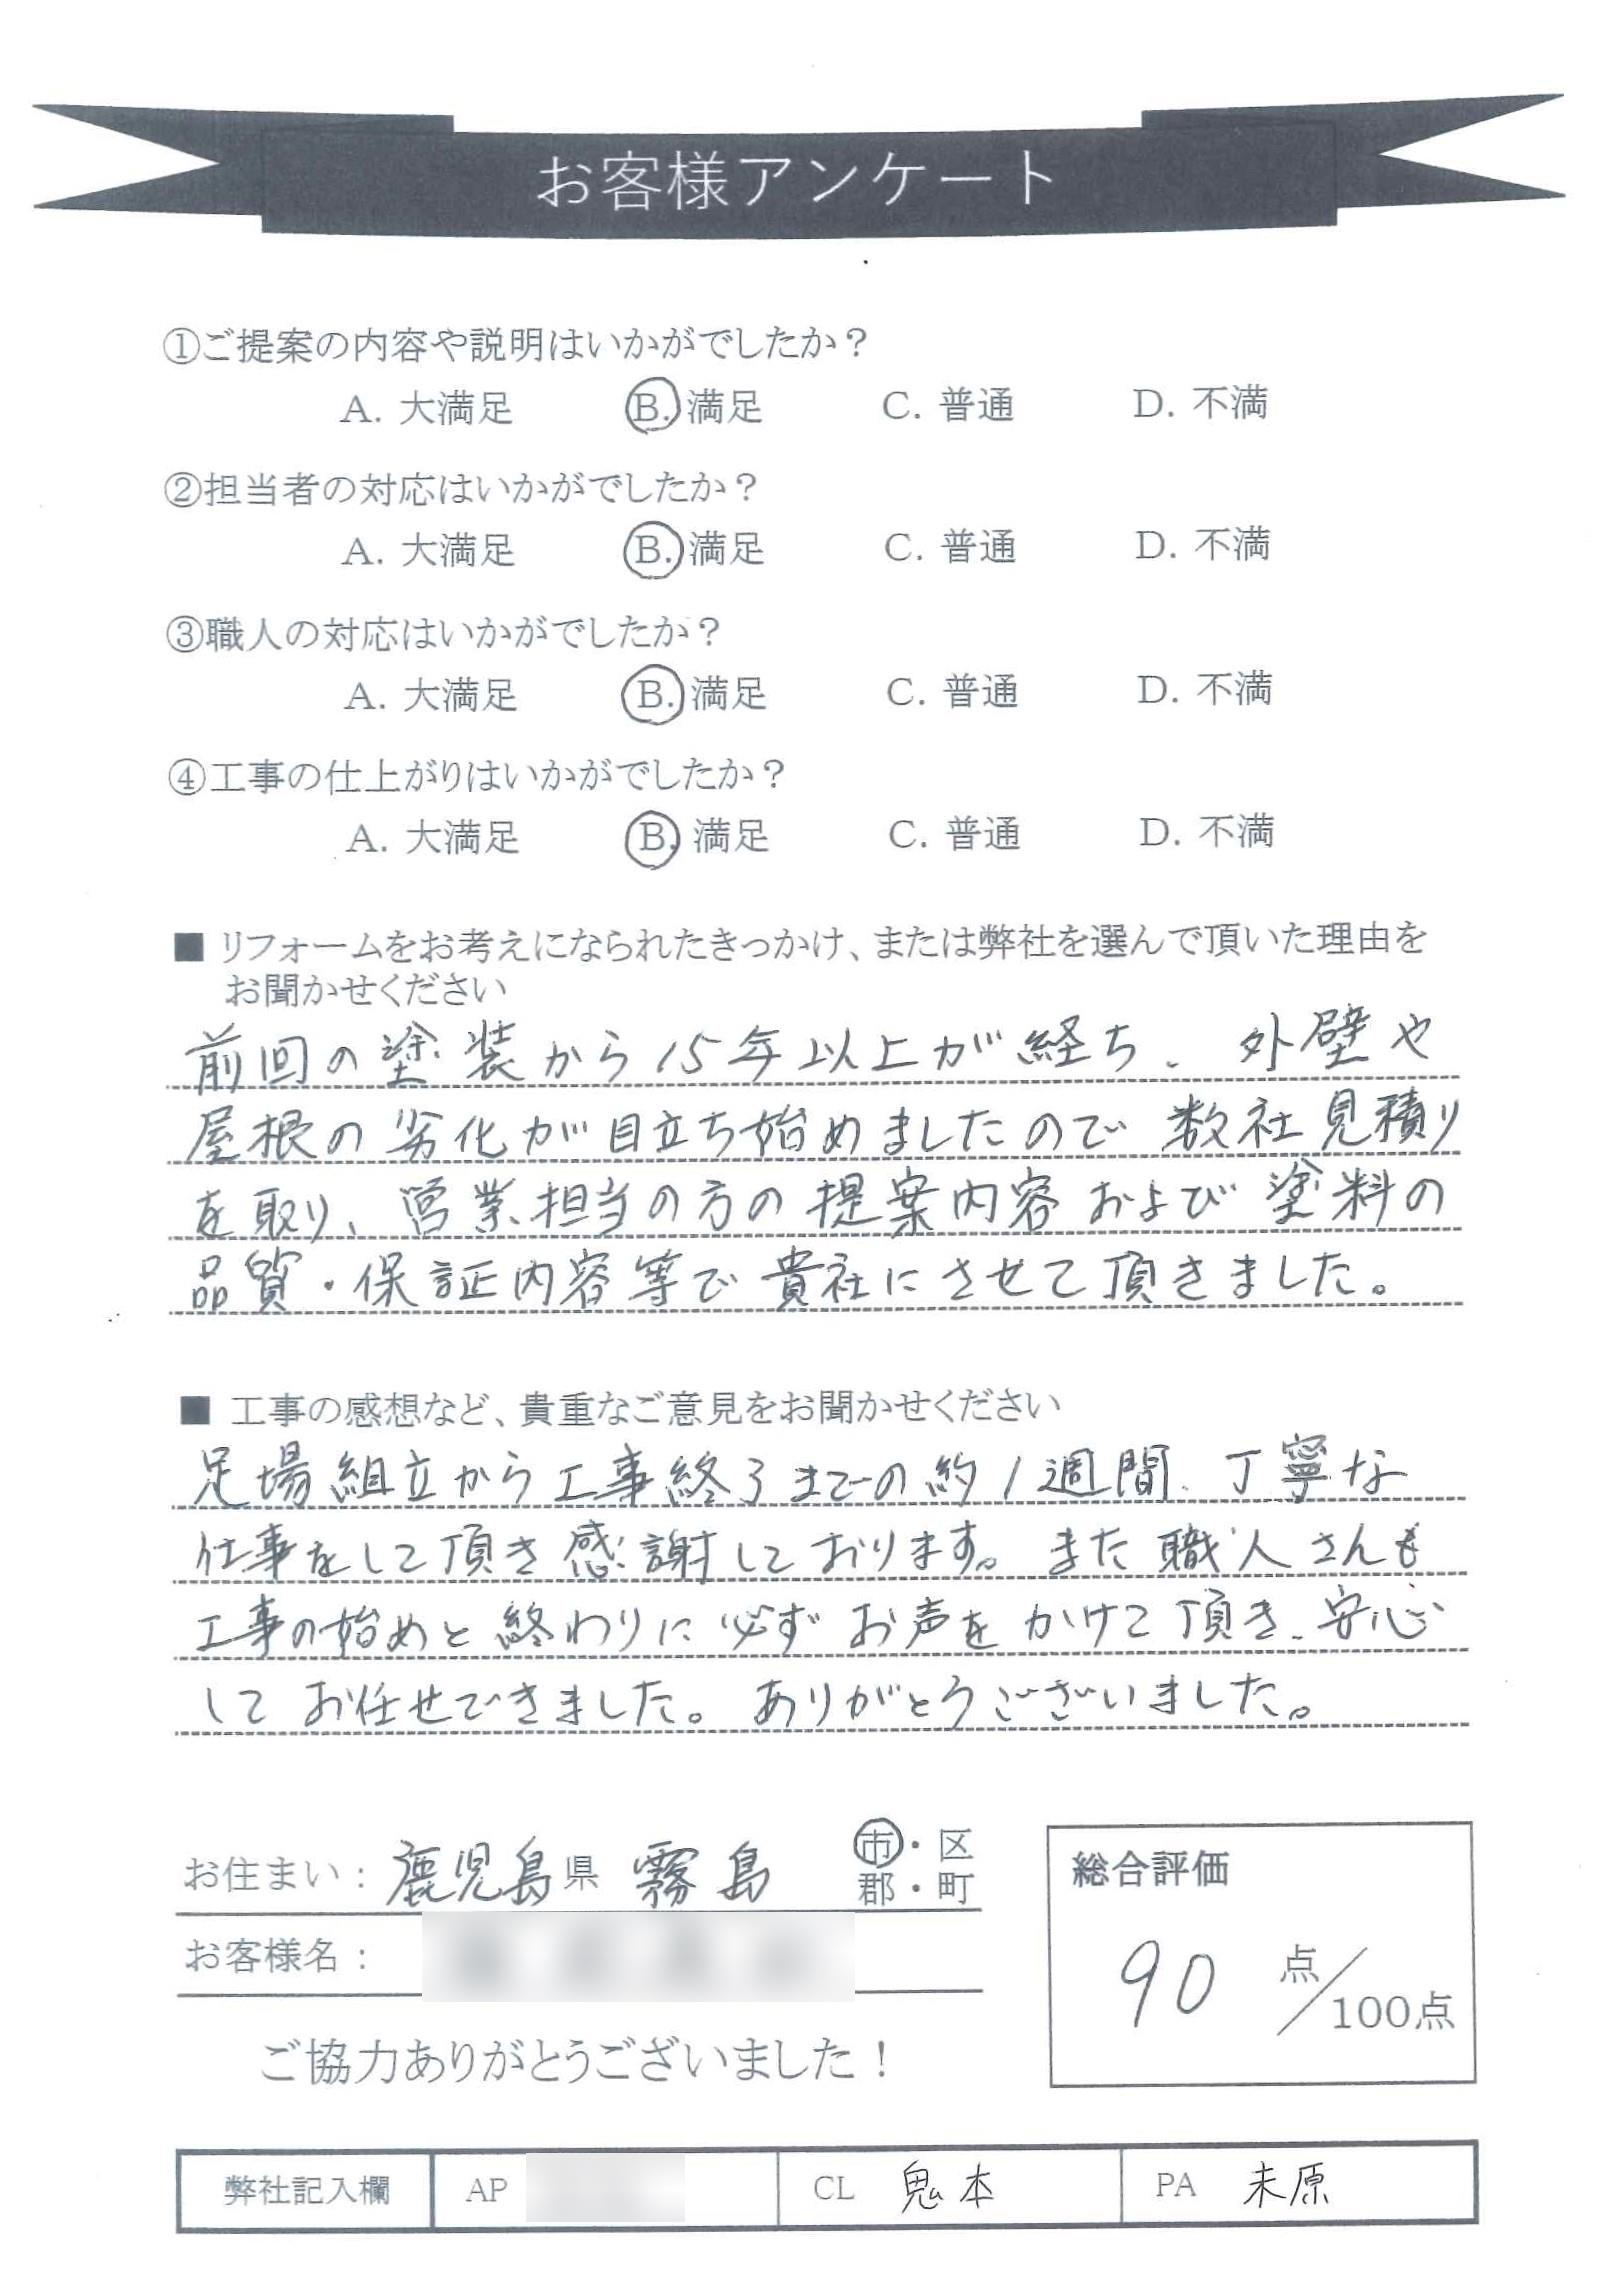 お客様アンケート
①ご提案の内容や説明はいかがでしたか？
A. 大満足 B. 満足 C. 普通 D. 不満
②担当者の対応はいかがでしたか？
A. 大満足 B. 満足 C. 普通 D. 不満
③職人の対応はいかがでしたか？
A. 大満足 B. 満足 C. 普通 D. 不満
④工事の仕上がりはいかがでしたか？
A. 大満足 B. 満足 C. 普通 D. 不満
■ リフォームをお考えになられたきっかけ、または弊社を選んで頂いた理由を
お聞かせください
前回の塗装から15年以上が経ち、外壁や
屋根の劣化が目立ち始めましたので数社見積り
を取り、営業担当の方の提案内容および塗料の
品質・保証内容等で貴社にさせて頂きました。
■ 工事の感想など、貴重なご意見をお聞かせください
足場組立から工事終了までの約1週間、丁寧な
仕事をして頂き感謝しております。また職人さんも
工事の始めと終わりに必ずお声をかけて頂き、安心
してお任せできました。ありがとうございました。
お住まい：鹿児島県 霧島 市・区
郡・町
お客様名：
総合評価
90 点／100点
ご協力ありがとうございました！
弊社記入欄 AP CL 鬼本 PA 末原